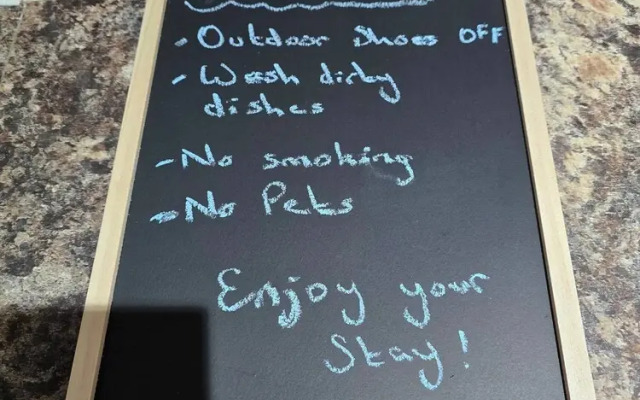 - Outdoor Shoes OFF
- Wash dirty
dishes
- No smoking
- No Pets
Enjoy your
Stay!